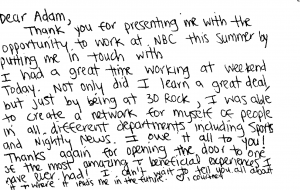 Dear Adam,
Thank you for presenting me with the
opportunity to work at NBC this summer by
putting me in touch with
I had a great time working at weekend
Today. Not only did I learn a great deal,
but just by being at 30 Rock, I was able
to create a network for myself of people
in all different departments including Sports
and Nightly News. I owe it all to you!
Thanks again for opening the door to one
of the most amazing & beneficial experiences I
have ever had! I can't wait to tell you all about
it & where it leads me in the future.